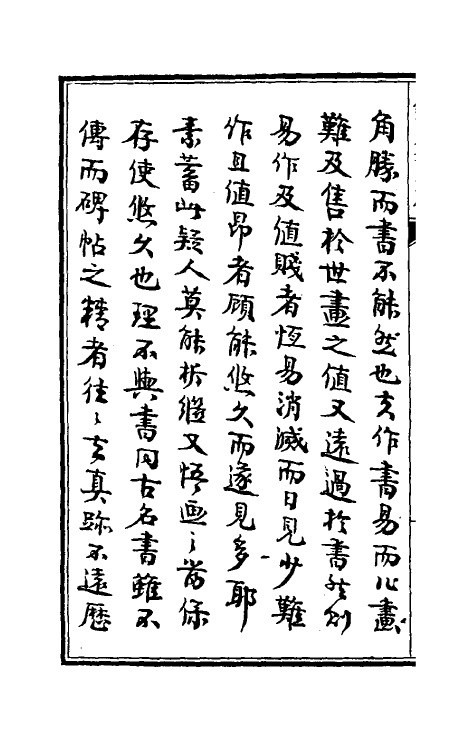 角勝而書不能然也夫作書易而作畫
難及售於世畫之值又遠過於書然則
易作及值賤者恆易消滅而日見少難
作且值昂者顧能悠久而遂見多耶
素蓄此疑人莫能析繼又悟画之當保
存使悠久也理不與書同古名書雖不
傳而碑帖之精者往〻去真跡不遠歷